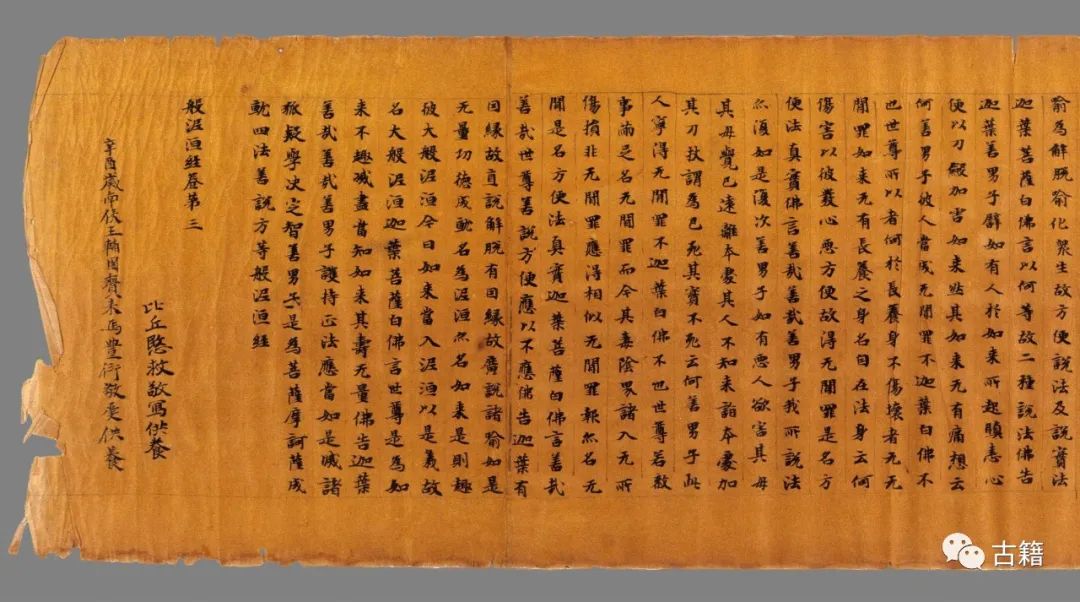 喻為解脫喻化眾生故方便說法及說實法
迦葉菩薩白佛言以何等故二種說法佛告
迦葉善男子譬如有人於如來所起瞋恚心
便以刀斫加害如來然其如來无有痛想云
何善男子彼人當成无間罪不迦葉白佛不
也世尊所以者何於長養身不傷壞者无无
間罪如來无有長養之身名自在法身云何
傷害以彼發心惡方便故得无間罪是名方
便法真實佛言善哉善哉善男子我所說法
亦復如是復次善男子如有惡人欲害其母
其母覺已遠離本處其人不知來詣本處加
其刀杖謂為已死其實不死云何善男子此
人寧得无間罪不迦葉白佛不也世尊若教
事滿足名无間罪而今其妻陰界諸入无所
傷損非无間罪應得相似无間罪報然名无
間是名方便法真實迦葉菩薩白佛言善哉
善哉世尊善說方便應以不應佛告迦葉有
因緣故直說解脫有因緣故廣說諸喻如是
无量功德成就名為涅洹然名如來是則趣
彼大般涅洹今日如來當入涅洹以是義故
名大般涅洹迦葉菩薩白佛言世尊是為如
來不趣滅盡當知如來其壽无量佛告迦葉
善哉善哉善男子護持正法應當如是滅諸
狐疑學決定智善男子是為菩薩摩訶薩成
就四法善說方等般涅洹經
般涅洹經卷第三
比丘愍敬寫供養
辛酉歲帝使主簡圓齊朱馬豊衍敬受供養
古籍